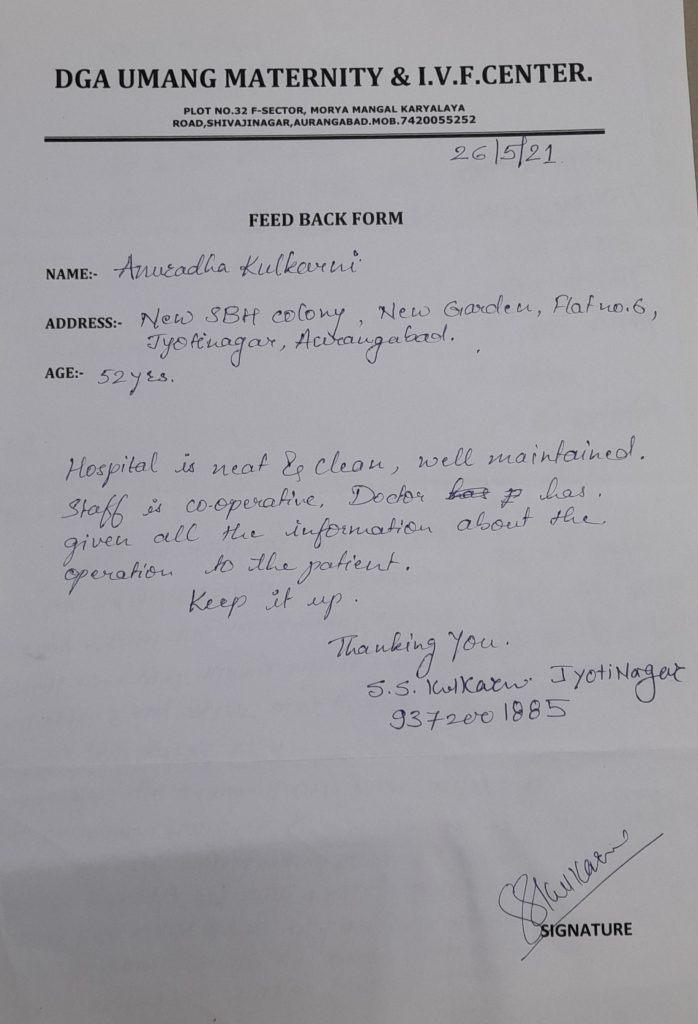 DGA UMANG MATERNITY & I.V.F.CENTER.
PLOT NO.32 F-SECTOR, MORYA MANGAL KARYALAYA
ROAD,SHIVAJINAGAR,AURANGABAD.MOB.7420055252
26/5/21
FEED BACK FORM
NAME:- Anuradha Kulkarni
ADDRESS:- New SBH colony, New Garden, Flat no.6,
Jyotinagar, Aurangabad.
AGE:- 52yrs.
Hospital is neat & clean, well maintained.
Staff is co-operative. Doctor has.
given all the information about the
operation to the patient.
Keep it up.
Thanking You.
S.S. Kulkarni JyotiNagar
9372001885
SSKulkarni
SIGNATURE